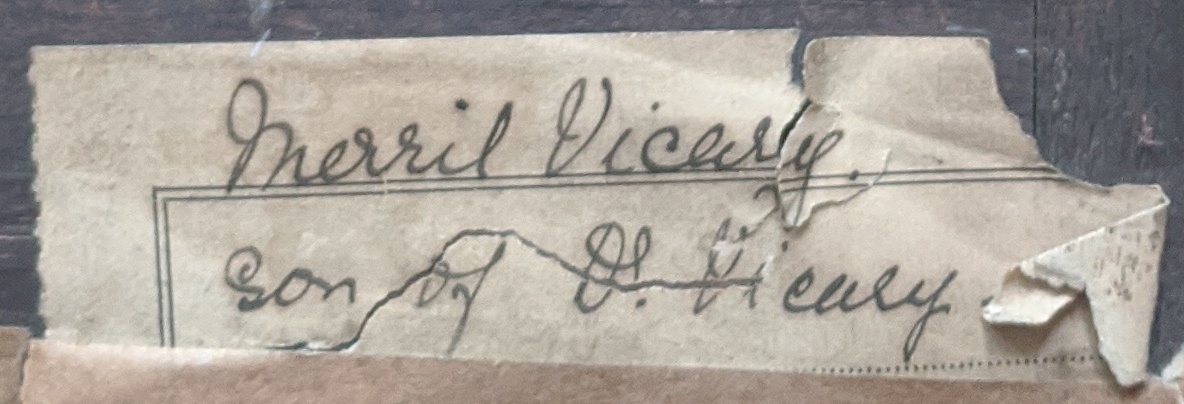 Merril Vicary.
son of V. Vicary.